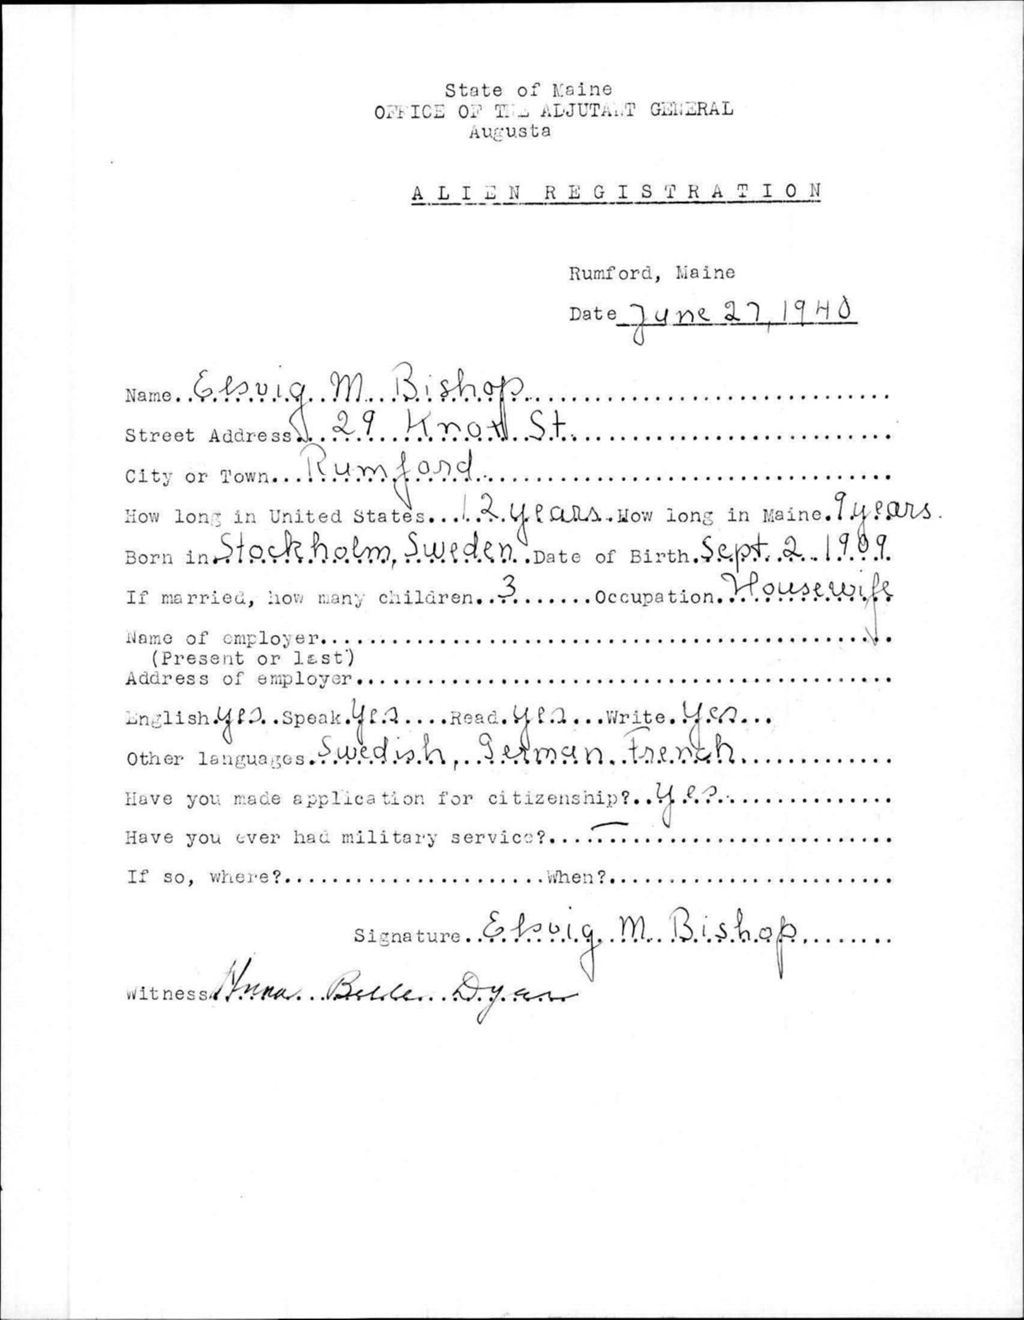 State of Maine
OFFICE OF THE ADJUTANT GENERAL
Augusta
ALIEN REGISTRATION
Rumford, Maine
Date June 27, 1940
Name Elsvig M. Bishop
Street Address 29 Knox St.
City or Town Rumford
How long in United States 12 years How long in Maine 9 years
Born in Stockholm, Sweden Date of Birth Sept. 2 1909
If married, how many children 3 Occupation Housewife
Name of employer
(Present or last)
Address of employer
English yes Speak yes Read yes Write yes
Other languages Swedish, German, French
Have you made application for citizenship? Yes
Have you ever had military service? —
If so, where? When?
Signature Elsvig M. Bishop
Witness Anna Belle Dyar